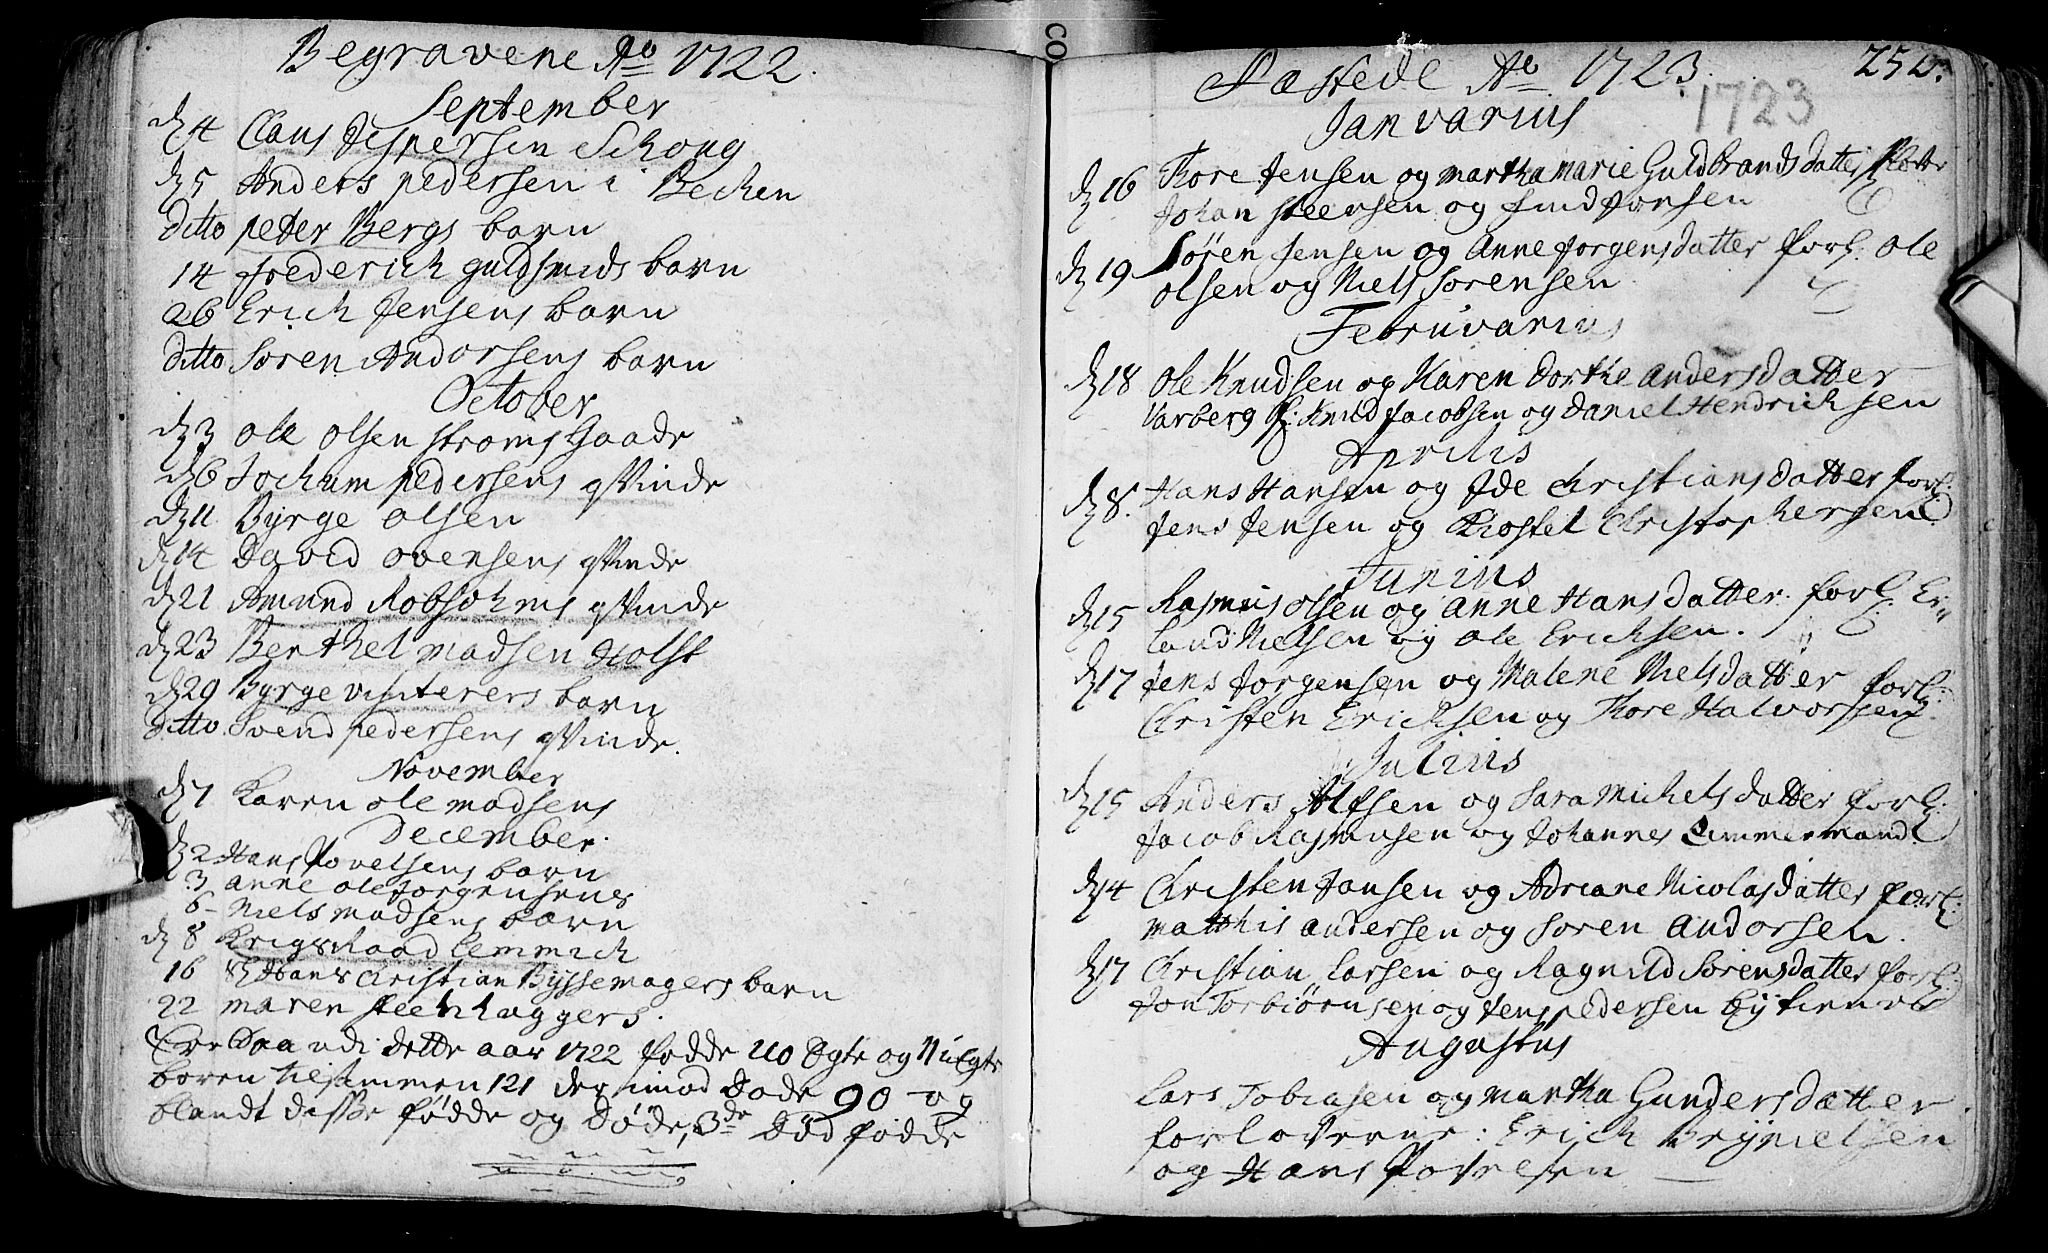 Begravene Ao 1722.
September
d 4 Claus Jespersen Schoug
d 5 Anders pedersen i Becken
ditto peter Bergs barn
14 frederich guldsmids barn
26 Erich Jensens barn
ditto Soren Andorsens barn
October
d 3 ole olsen stroms Gaade
d 6 Jochum pedersens qvinde
d 11 Byrge olsen
d 14 David ovensens qvinde
d 21 Amund Robsohms qvinde
d 23 Berthel madsen Holst
d 29 Byrge vinterers barn
ditto Svend pedersens qvinde.
November
d 1 Karen ole madsens
December.
d 2 Hans Povelsens barn
3 anne ole Jorgensens
6 Niels madsens barn
d 8 Krigsraad Lemmich
16 Hans Christian Byssemagers barn
22 maren steenhuggers.
Er Saa udi dette aar 1722 fødde 110 Egte og 11 uEgte
boren tilsammen 121 der imod Døde 90 og
blandt disse fødde og Døde, 3de Død fødde
252.
Ao 1723.
1723
Januarius
d 16 Thore Jensen og martha marie Guldbrands datter
Johan steensen og find Jonsen
d 19 Søren Jensen og Anne Jorgensdatter forl. ole
olsen og Niels Sorensen
Februvarius
d 18 ole Knudsen og Karen Dorthe andersdatter
Varberg f: Knud Jacobsen og Daniel Hendrichsen
Aprilis
d 8. Hans Hansen og Ide Christiansdatter forl:
Jens Jensen og Christophersen
Junius
d 15 Rasmus olsen og anne Hansdatter. forl: Er„
land Nielsen og ole Ericksen.
d 17 Jens Jorgensen og Malene Nielsdatter forl:
Christen Ericksen og Thore Halvorsen
Julius
d 15 Anders Alfsen og Sara Michelsdatter forl:
Jacob Rasmusen og Johannes Timmermand
d 14 Christen Jansen og Adriane Nicolasdatter forl:
matthis andersen og Soren Andorsen.
d 17 Christian Larsen og Ragnild Sorensdatter forl:
Jon Torbiørnsen og Jens pedersen
Augustus
Lars Tobiasen og martha Gundersdatter.
forloverne: Erich Brynielsen
og Hans Povelsen